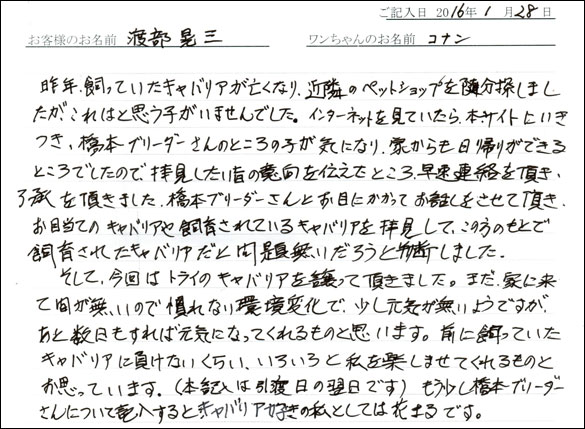 ご記入日 2016年 1月 28日
お客様のお名前 渡部晃三 ワンちゃんのお名前 コナン
昨年、飼っていたキャバリアが亡くなり、近隣のペットショップを随分探しまし
たが、これはと思う子がいませんでした。インターネットを見ていたら、本サイトにいき
つき、橋本ブリーダーさんのところの子が気になり、家からも日帰りができる
ところでしたので拝見したい旨の意向を伝えたところ、早速連絡を頂き、
了承を頂きました。橋本ブリーダーさんとお目にかかってお話しをさせて頂き、
お目当てのキャバリアや飼育されているキャバリアを拝見して、この方のもとで
飼育されたキャバリアだと問題無いだろうと判断しました。
そして、今回はトライのキャバリアを譲って頂きました。まだ、家に来
て間が無いので慣れない環境変化で、少し元気が無いようですが、
あと数日もすれば元気になってくれるものと思います。前に飼っていた
キャバリアに負けないくらい、いろいろと私を楽しませてくれるものと
お思っています。(本記入は引渡日の翌日です) もう少し橋本ブリーダー
さんについて記入するとキャバリア好きの私としては花まるです。